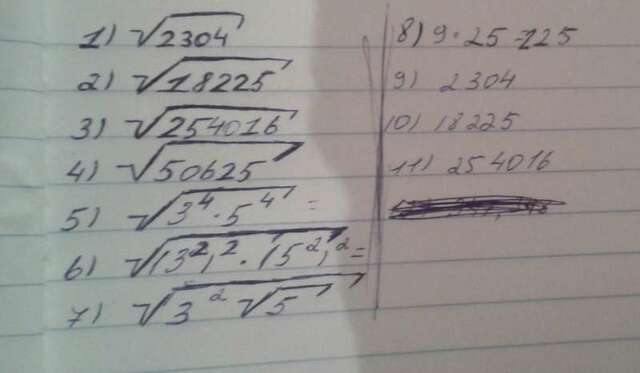 1) √2304
2) √18225
3) √254016
4) √50625
5) √3⁴·5⁴ =
6) √(3²)²·(5²)² =
7) √3² √5
8) 9·25=225
9) 2304
10) 18225
11) 254016